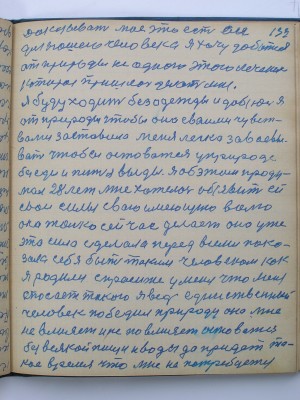 показывает мое это есть все 133
для нашего человека я хочу добиться
от природы не одного этого лечения
которая пришлось делать мне.
Я буду ходить без одежды и добьюся
от природы чтобы она своими чувст-
вами заставила меня легко завоевы-
вать чтобы остоватся у природе
без еды и питья воды. Я об этом проду-
мал 28 лет мне хотелося обявить ей
свои силы свою имеющую волю
она только сейчас делает она уже
это сила сделала перед всеми пока-
зала себя быть таким человеком как
я родился спросите у меня что меня
спасает такого я ведь единственный
человек победил природу она мне
не влияет и не повлияет остоватся
без всякой пищи и воды да придет та-
кое время что мне не потребуется